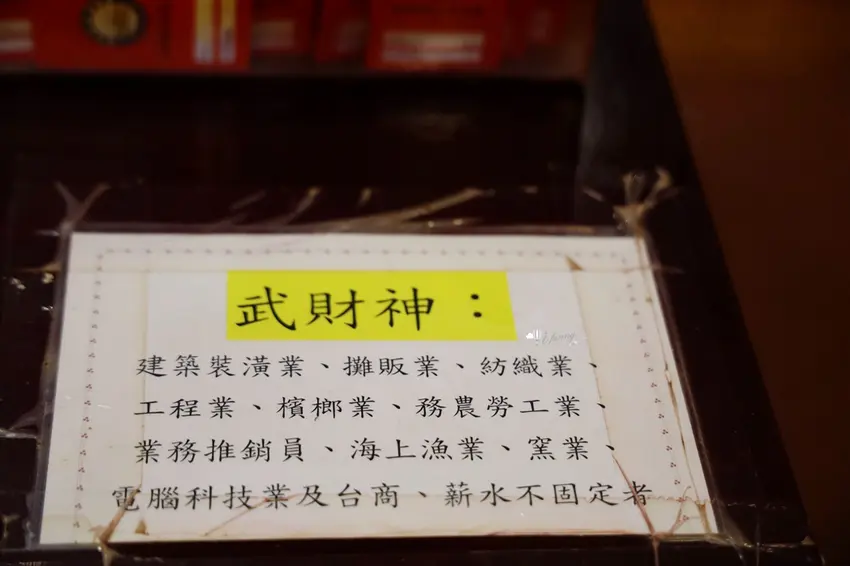 武財神：
建築裝潢業、攤販業、紡織業、
工程業、檳榔業、務農勞工業、
業務推銷員、海上漁業、窯業、
電腦科技業及台商、薪水不固定者